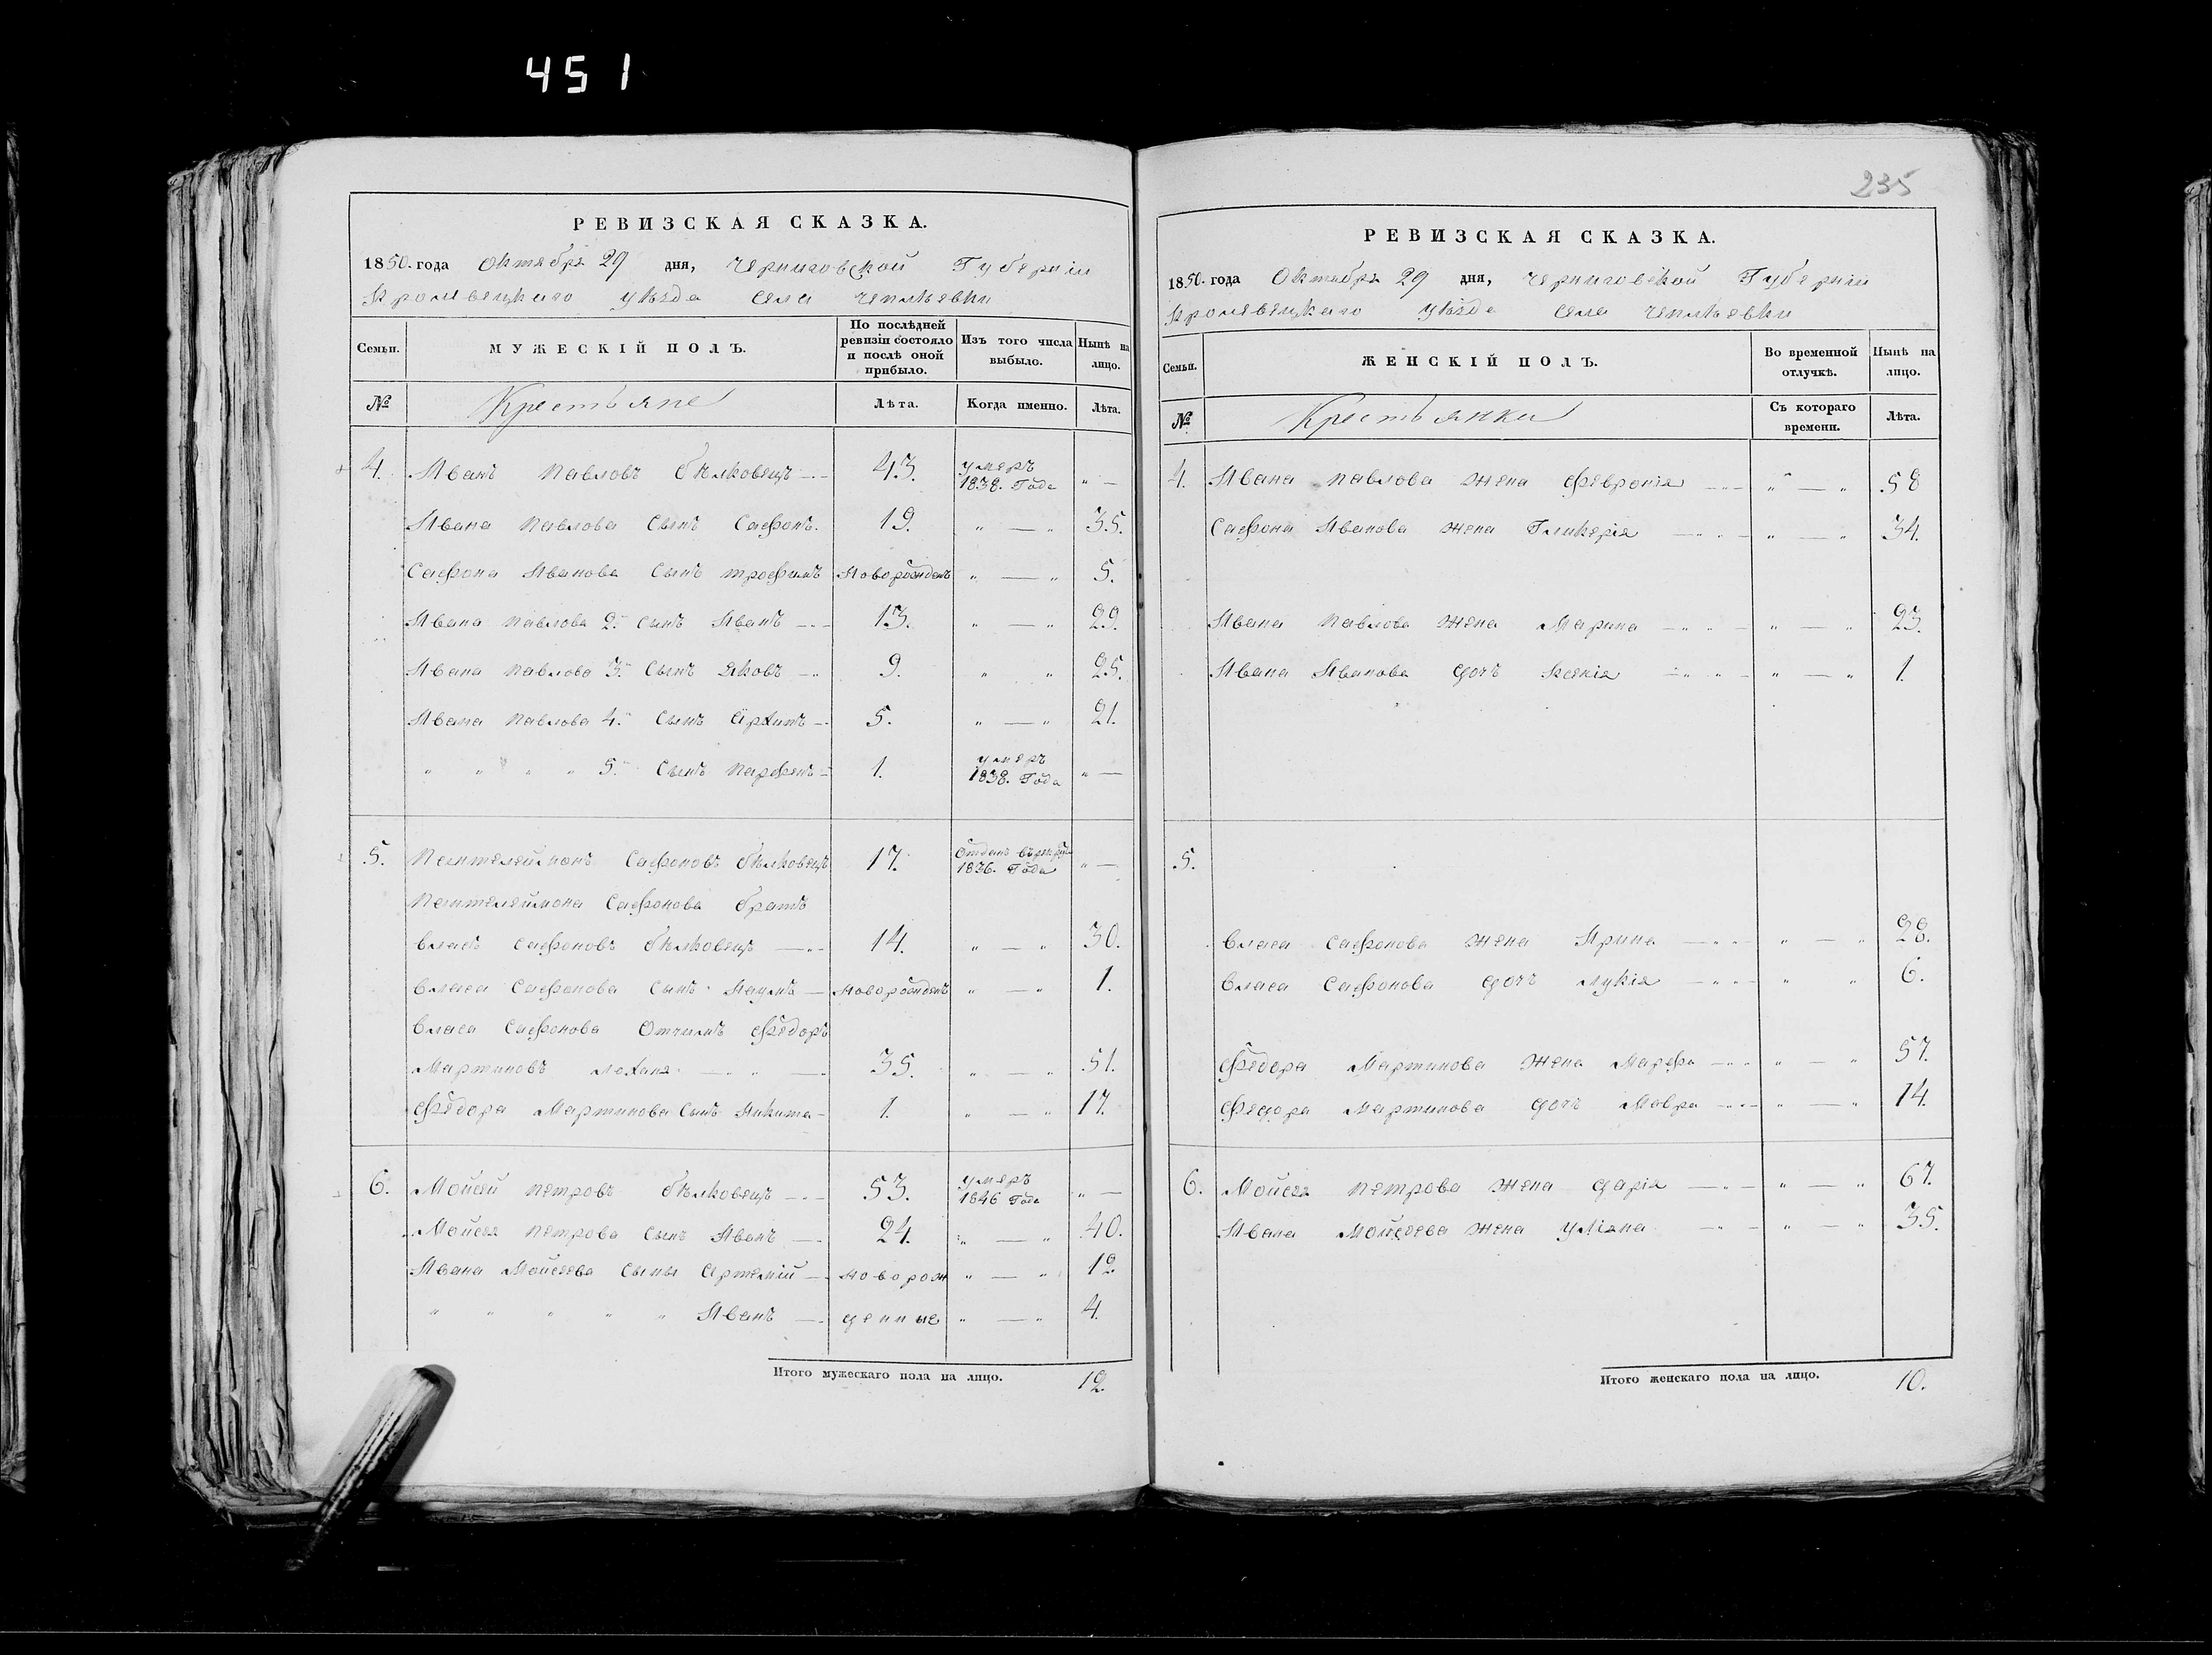 451
РЕВИЗСКАЯ СКАЗКА.
1850. года Октября 29 дня, Черниговской Губернiи
Кролевецкаго уѣзда села Чеплѣевки
Семьи. МУЖЕСКІЙ ПОЛЪ. По послѣдней ревизіи состояло и послѣ оной прибыло. Изъ того числа выбыло. Нынѣ на лицо.
№ Крестьяне Лѣта. Когда именно. Лѣта.
4. Иванъ Павловъ Бѣлковецъ 43. умеръ 1838. Года " —
Ивана Павлова Сынъ Сафонъ. 19. " — " 35.
Сафона Иванова Сынъ Трофимъ Новорожденъ " — " 5.
Ивана Павлова 2й Сынъ Иванъ 13. " — " 29.
Ивана Павлова 3й Сынъ Яковъ 9. " " 25.
Ивана Павлова 4й Сынъ Архипъ 5. " — " 21.
" " " " 5й Сынъ Парфенъ 1. умеръ 1838. Года " —
5. Пантелеймонъ Сафоновъ Бѣлковецъ 17. Отданъ въ рекруты 1836. Года " —
Пантелеймона Сафонова братъ
Власъ Сафоновъ Бѣлковецъ 14. " — " 30.
Власа Сафонова Сынъ Наумъ Новорожденъ " — " 1.
Власа Сафонова Отчимъ Федоръ
Мартиновъ Лоханя 35. " — " 51.
Федора Мартинова Сынъ Никита 1. " — " 17.
6. Мойсей Петровъ Бѣлковецъ 53. умеръ 1846 Года " —
Мойсея Петрова Сынъ Иванъ 24. " — " 40.
Ивана Мойсеева Сыны Артемій новорож " — " 12
" " " " " Иванъ денные " — " 4.
Итого мужескаго пола на лицо. 12.
235
РЕВИЗСКАЯ СКАЗКА.
1850. года Октября 29 дня, Черниговской Губерніи
Кролевецкаго уѣзда села Чеплѣевки
Семьи. ЖЕНСКІЙ ПОЛЪ. Во временной отлучкѣ. Нынѣ на лицо.
№ Крестьянки Съ котораго времени. Лѣта.
4. Ивана Павлова жена Февронія " — " 58
Сафона Иванова жена Гликерія " — " 34.
Ивана Павлова жена Марина " — " 23.
Ивана Иванова дочь Ксенія " — " 1.
5.
Власа Сафонова жена Ирина " — " 28.
Власа Сафонова дочь Лукія " " 6.
Федора Мартинова жена Марфа " — " 57.
Федора Мартинова дочь Мавра " — " 14.
6. Мойсея Петрова жена Дарія " — " 67.
Ивана Мойсеева жена Уліяна " — " 35.
Итого женскаго пола на лицо. 10.